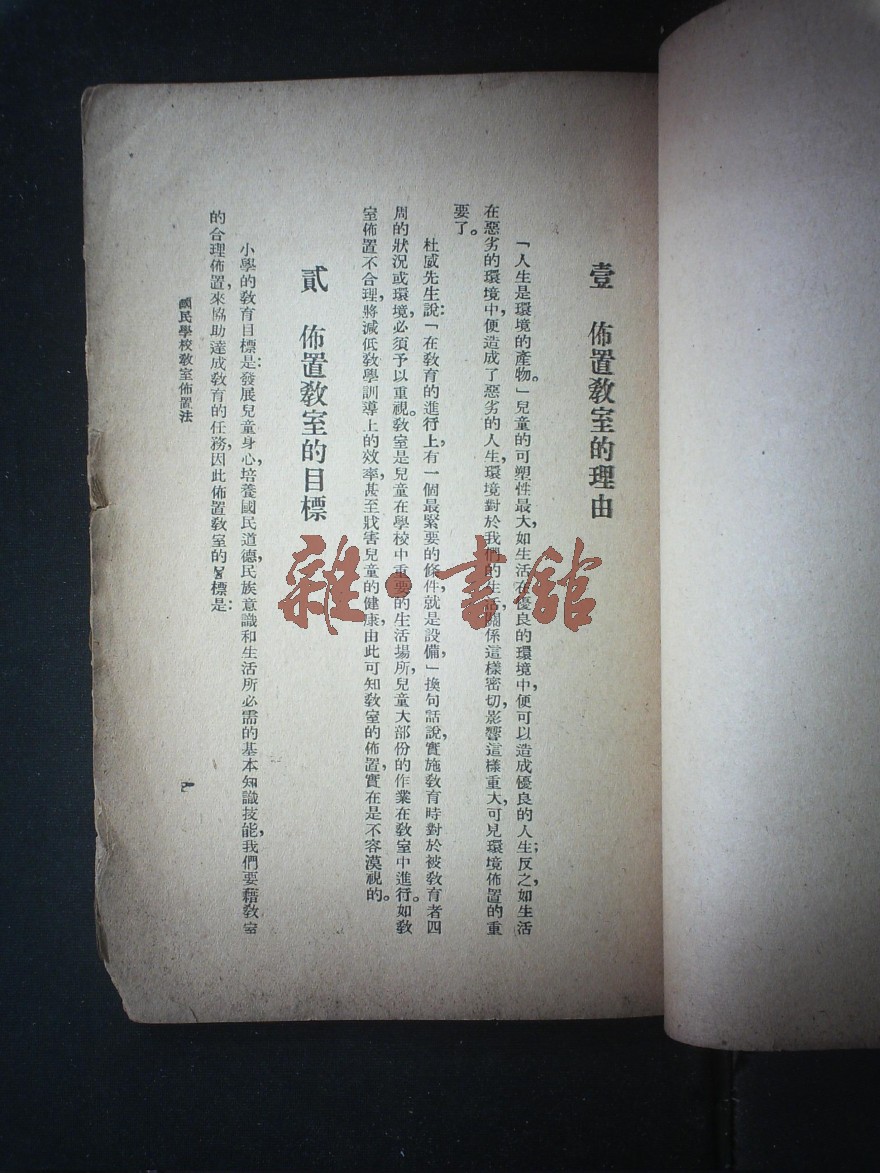 壹　佈置敎室的理由
「人生是環境的產物。」兒童的可塑性最大，如生活在優良的環境中，便可以造成優良的人生；反之，如生活
在惡劣的環境中，便造成了惡劣的人生，環境對於我們的生活，關係這樣密切，影響這樣重大，可見環境佈置的重
要了。
杜威先生說：「在敎育的進行上，有一個最緊要的條件，就是設備」換句話說，實施敎育時對於被敎育者四
周的狀況或環境，必須予以重視。敎室是兒童在學校中重要的生活場所，兒童大部份的作業在敎室中進行。如敎
室佈置不合理，將減低敎學訓導上的效率，甚至戕害兒童的健康，由此可知敎室的佈置，實在是不容漠視的。
貳　佈置敎室的目標
小學的敎育目標是：發展兒童身心，培養國民道德，民族意識和生活所必需的基本知識技能，我們要藉敎室
的合理佈置，來協助達成敎育的任務，因此佈置敎室的目標是：
國民學校敎室佈置法
一
雜·書館